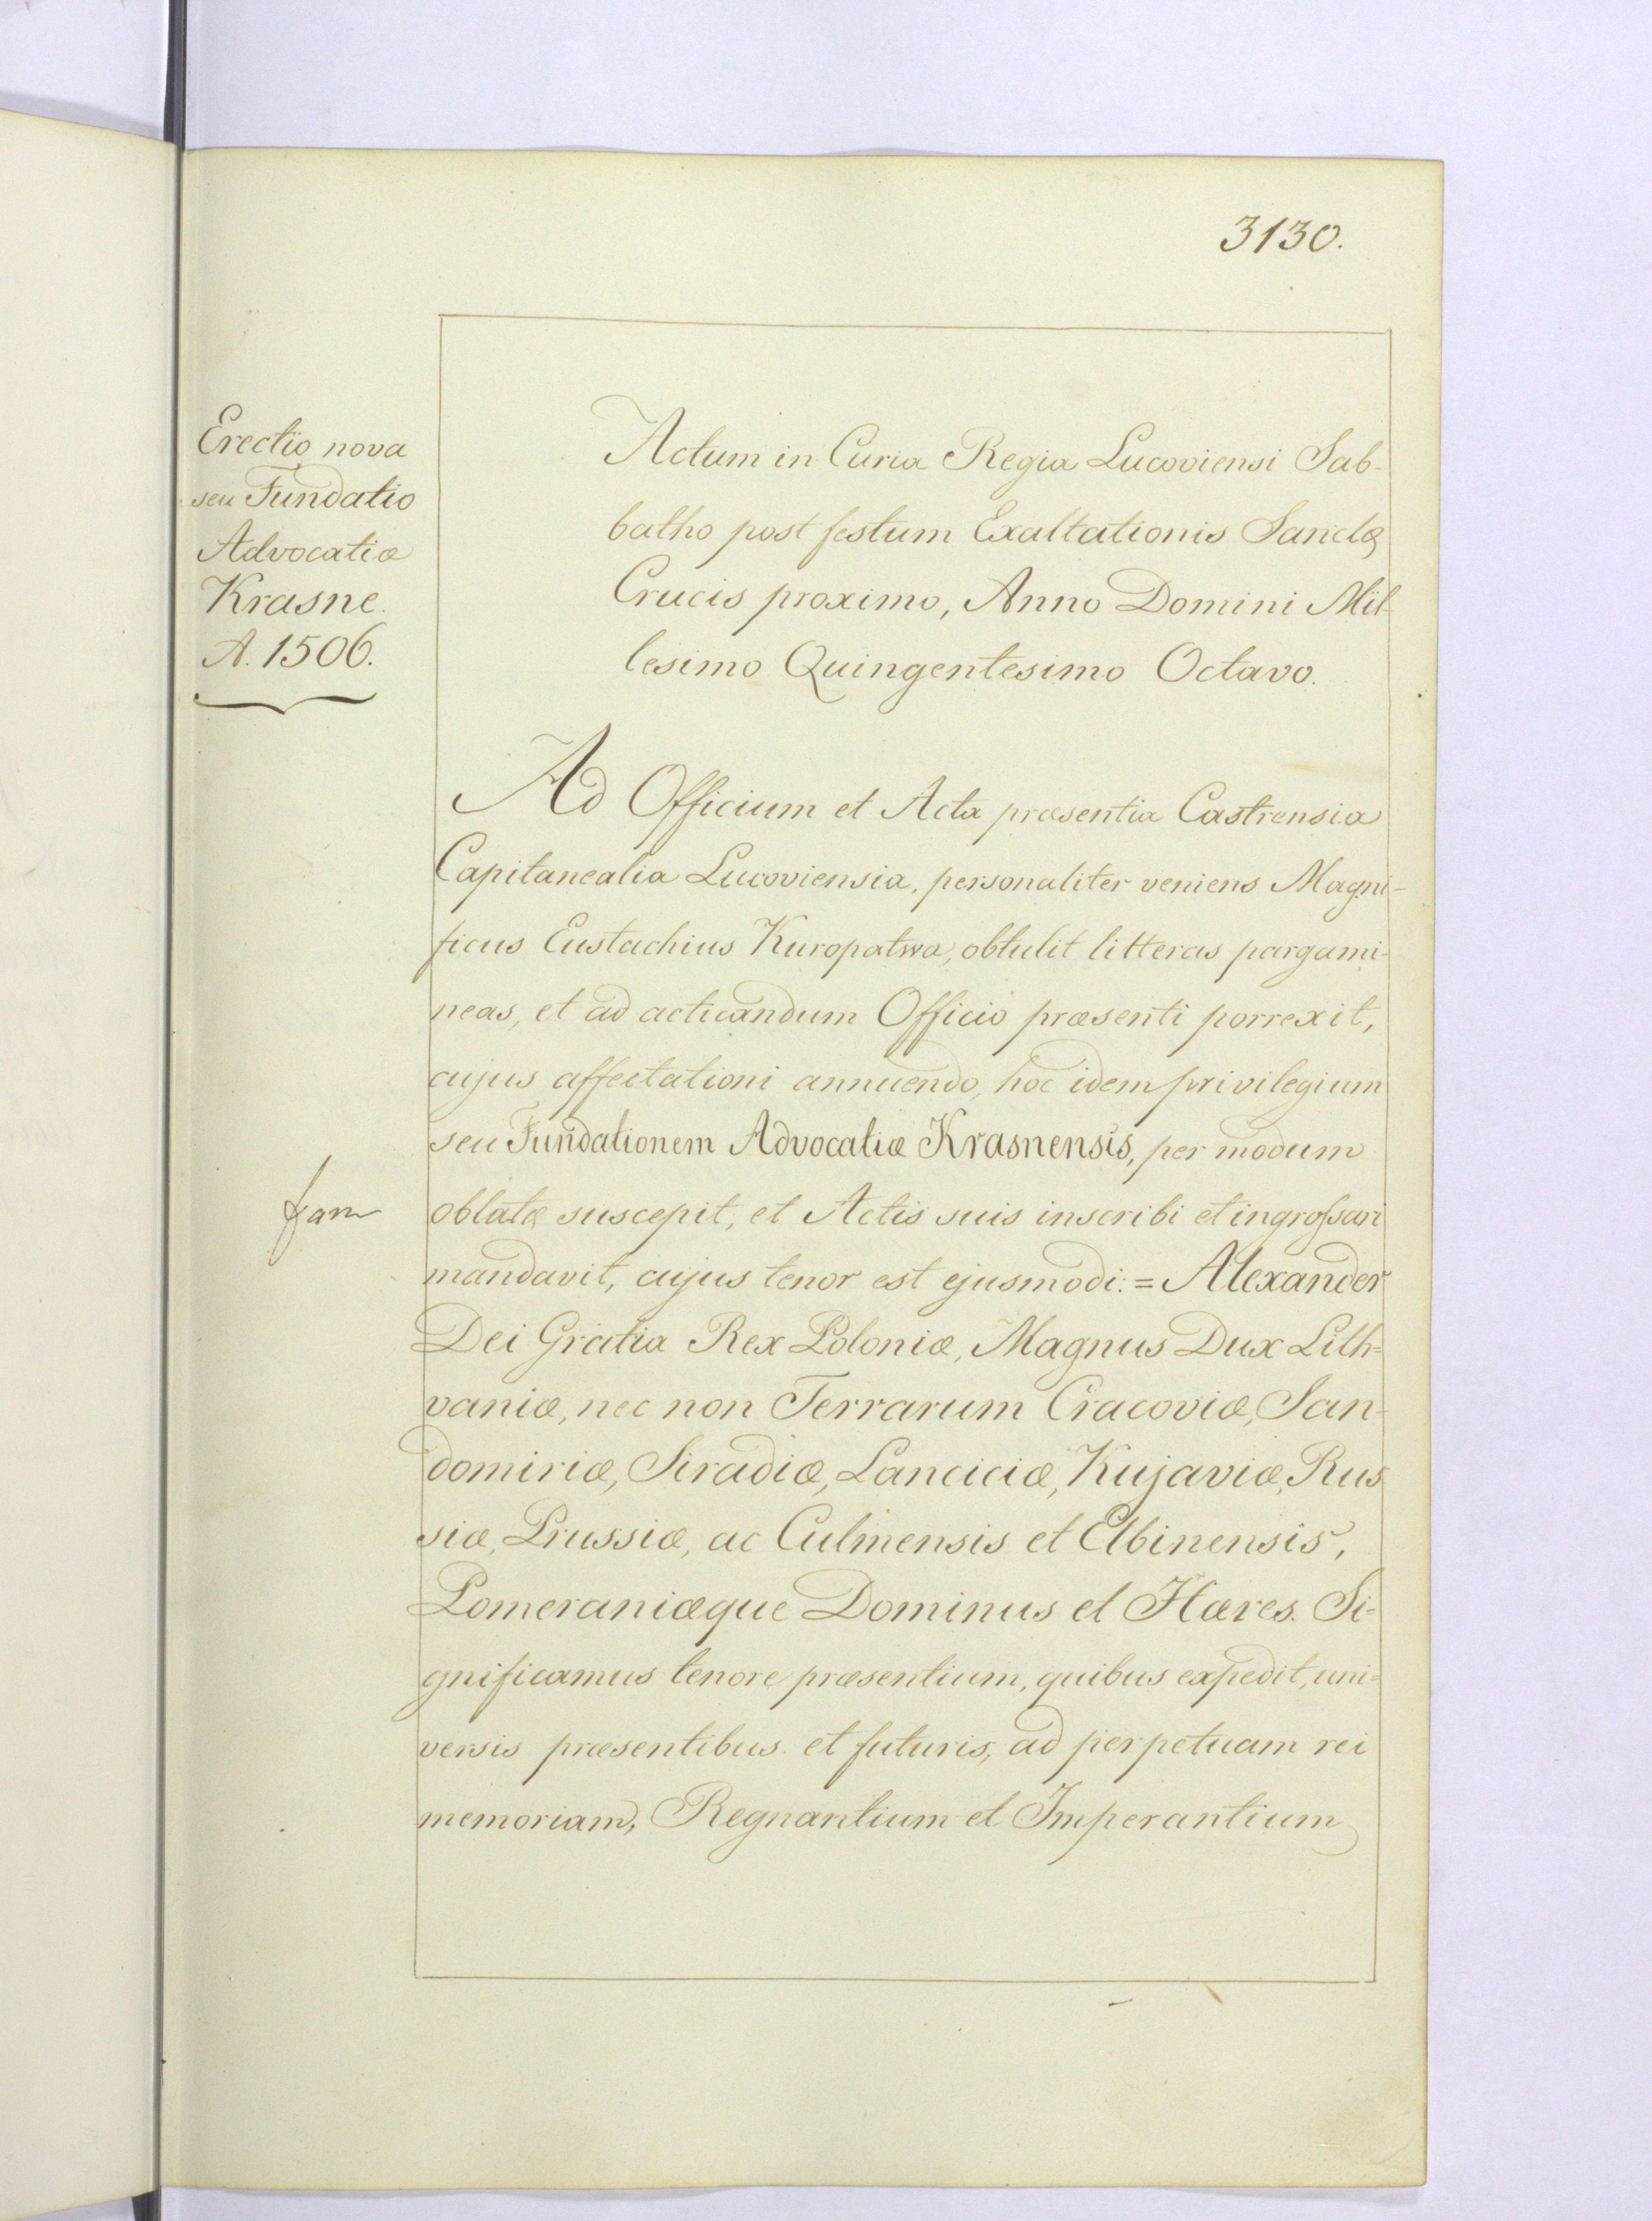 3130.
Erectio nova
seu Fundatio
Advocatiæ
Krasne.
A. 1506.
Actum in Curia Regia Lucoviensi Sab-
batho post festum Exaltationis Sanctæ
Crucis proximo, Anno Domini Mil-
lesimo Quingentesimo Octavo.
Ad Officium et Acta præsentia Castrensia
Capitanealia Lucoviensia, personaliter veniens Magni-
ficus Eustachius Kuropatwa, obtulit litteras pargami-
neas, et ad acticandum Officio præsenti porrexit,
cujus affectationi annuendo, hoc idem privilegium
seu Fundationem Advocatiæ Krasnensis, per modum
oblatæ suscepit, et Actis suis inscribi et ingrossari
mandavit, cujus tenor est ejusmodi: = Alexander
Dei Gratia Rex Poloniæ, Magnus Dux Lith=
vaniæ, nec non Terrarum Cracoviæ, San-
domiriæ, Siradiæ, Lanciciæ, Kujaviæ, Rus
siæ, Prussiæ, ac Culmensis et Elbinensis,
Pomeraniæque Dominus et Hæres. Si=
gnificamus tenore præsentium, quibus expedit, uni=
versis præsentibus et futuris, ad perpetuam rei
memoriam, Regnantium et Imperantium